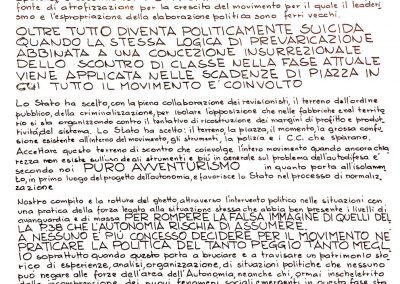 fonte di atrofizzazione per la crescita del movimento per il quale il leader
smo e l'espropriazione della elaborazione politica sono ferri vecchi.
OLTRE TUTTO DIVENTA POLITICAMENTE SUICIDA
QUANDO LA STESSA LOGICA DI PREVARICAZIONE
ABBINATA A UNA CONCEZIONE INSURREZIONALE
DELLO SCONTRO DI CLASSE NELLA FASE ATTUALE
VIENE APPLICATA NELLE SCADENZE DI PIAZZA IN
CUI TUTTO IL MOVIMENTO E' COINVOLTO
Lo Stato ha scelto, con la piena collaborazione dei revisionisti, il terreno dell'ordine
pubblico, della criminalizzazione, per isolare l'opposizione che nelle fabbriche e nel territo
rio si sta organizzando contro il tentativo di ricostruzione dei margini di profitto e produt
tività del sistema. Lo Stato ha scelto: il terreno, la piazza, il momento, la grossa confu
sione esistente all'interno del movimento, gli strumenti, la polizia e i C.C. che sparano.
Accettare questo terreno di scontro che coinvolge l'intero movimento quando ancora chia
rezza non esiste sull'uso degli strumenti e più in generale sul problema dell'autodifesa e'
secondo noi PURO AVVENTURISMO in quanto porta all'isolamen
to, in primo luogo del progetto dell'autonomia, e favorisce lo Stato nel processo di normaliz
zazione
Nostro compito e' la rottura del ghetto, attraverso l'intervento politico nelle situazioni con
una pratica della forza legata alla situazione stessa che abbia ben presente i livelli di
avanguardia e di massa PER ROMPERE LA FALSA IMMAGINE DI QUELLI DEL
LA P38 CHE L'AUTONOMIA RISCHIA DI ASSUMERE.
A NESSUNO E' PIU' CONCESSO DECIDERE PER IL MOVIMENTO NE'
PRATICARE LA POLITICA DEL TANTO PEGGIO TANTO MEGL
IO soprattutto quando questo porta a bruciare e a travisare un patrimonio sto
rico di esperienze, analisi, organizzazione, di situazioni politiche che nessuno
può negare alle forze dell'area dell'Autonomia, neanche chi, ormai inscheletrito
dalla incomprensione dei nuovi fenomeni sociali emergenti in questa fase sto